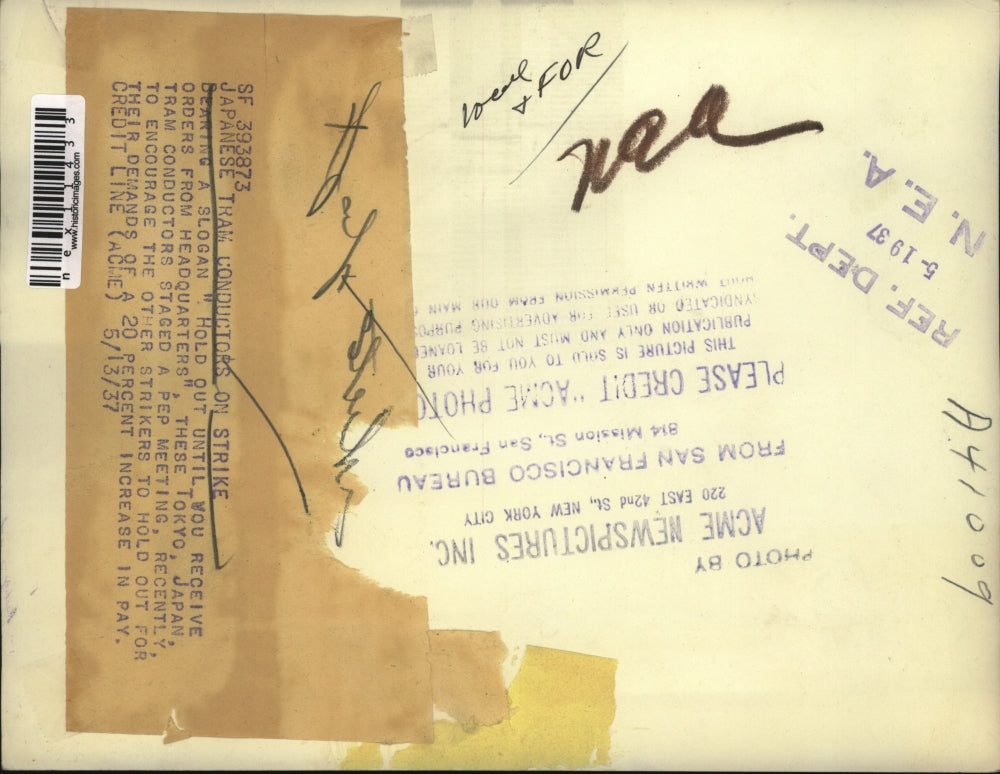 SF 393873
JAPANESE TRAM CONDUCTORS ON STRIKE
BEARING A SLOGAN " HOLD OUT UNTIL YOU RECEIVE
ORDERS FROM HEADQUARTERS", THESE TOKYO, JAPAN,
TRAM CONDUCTORS STAGED A PEP MEETING, RECENTLY,
TO ENCOURAGE THE OTHER STRIKERS TO HOLD OUT FOR
THEIR DEMANDS OF A 20 PERCENT INCREASE IN PAY.
CREDIT LINE (ACME) 5/13/37
nex11433
www.historicimages.com
local
& FOR
REF. DEPT.
5-19 37
N. E. A.
PHOTO BY
ACME NEWSPICTURES INC.
220 EAST 42nd St., NEW YORK CITY
FROM SAN FRANCISCO BUREAU
814 Mission St., San Francisco
PLEASE CREDIT "ACME PHOTO
THIS PICTURE IS SOLD TO YOU FOR YOUR
PUBLICATION ONLY AND MUST NOT BE LOANED
SYNDICATED OR USED FOR ADVERTISING PURPOS
WRITTEN PERMISSION FROM OUR MAIN
A41009